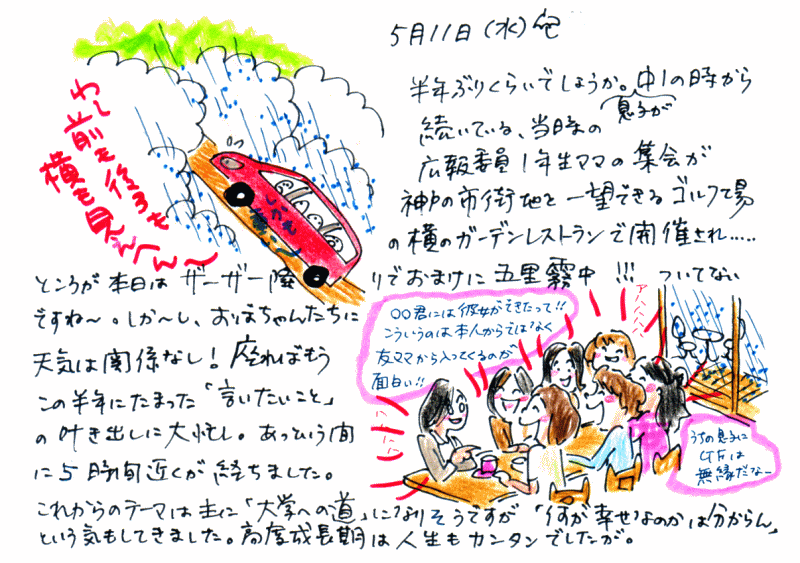 5月11日(水)
半年ぶりくらいでしょうか。中1の時から
息子が
続いている、当時の
広報委員1年生ママの集会が
神戸の市街地を一望できるゴルフ場
の横のガーデンレストランで開催され.....
わし前も後ろも
横も見えへん〜
ところが本日はザーザー降りでおまけに五里霧中!!! ついてない
ですね〜。しか〜し、おばちゃんたちに
天気は関係なし!座ればもう
この半年にたまった「言いたいこと」
の吐き出しに大忙し。あっという間
に5時間近くが経ちました。
〇〇君には彼女ができたって!!
こういうのは本人からではなく
友ママから入ってくるのが
面白い!!
アハハハハ
うちの息子に
は
無縁だなー
これからのテーマは主に「大学への道」になりそうですが「何が幸せなのかは分からん」
という気もしてきました。高度成長期は人生もカンタンでしたが。